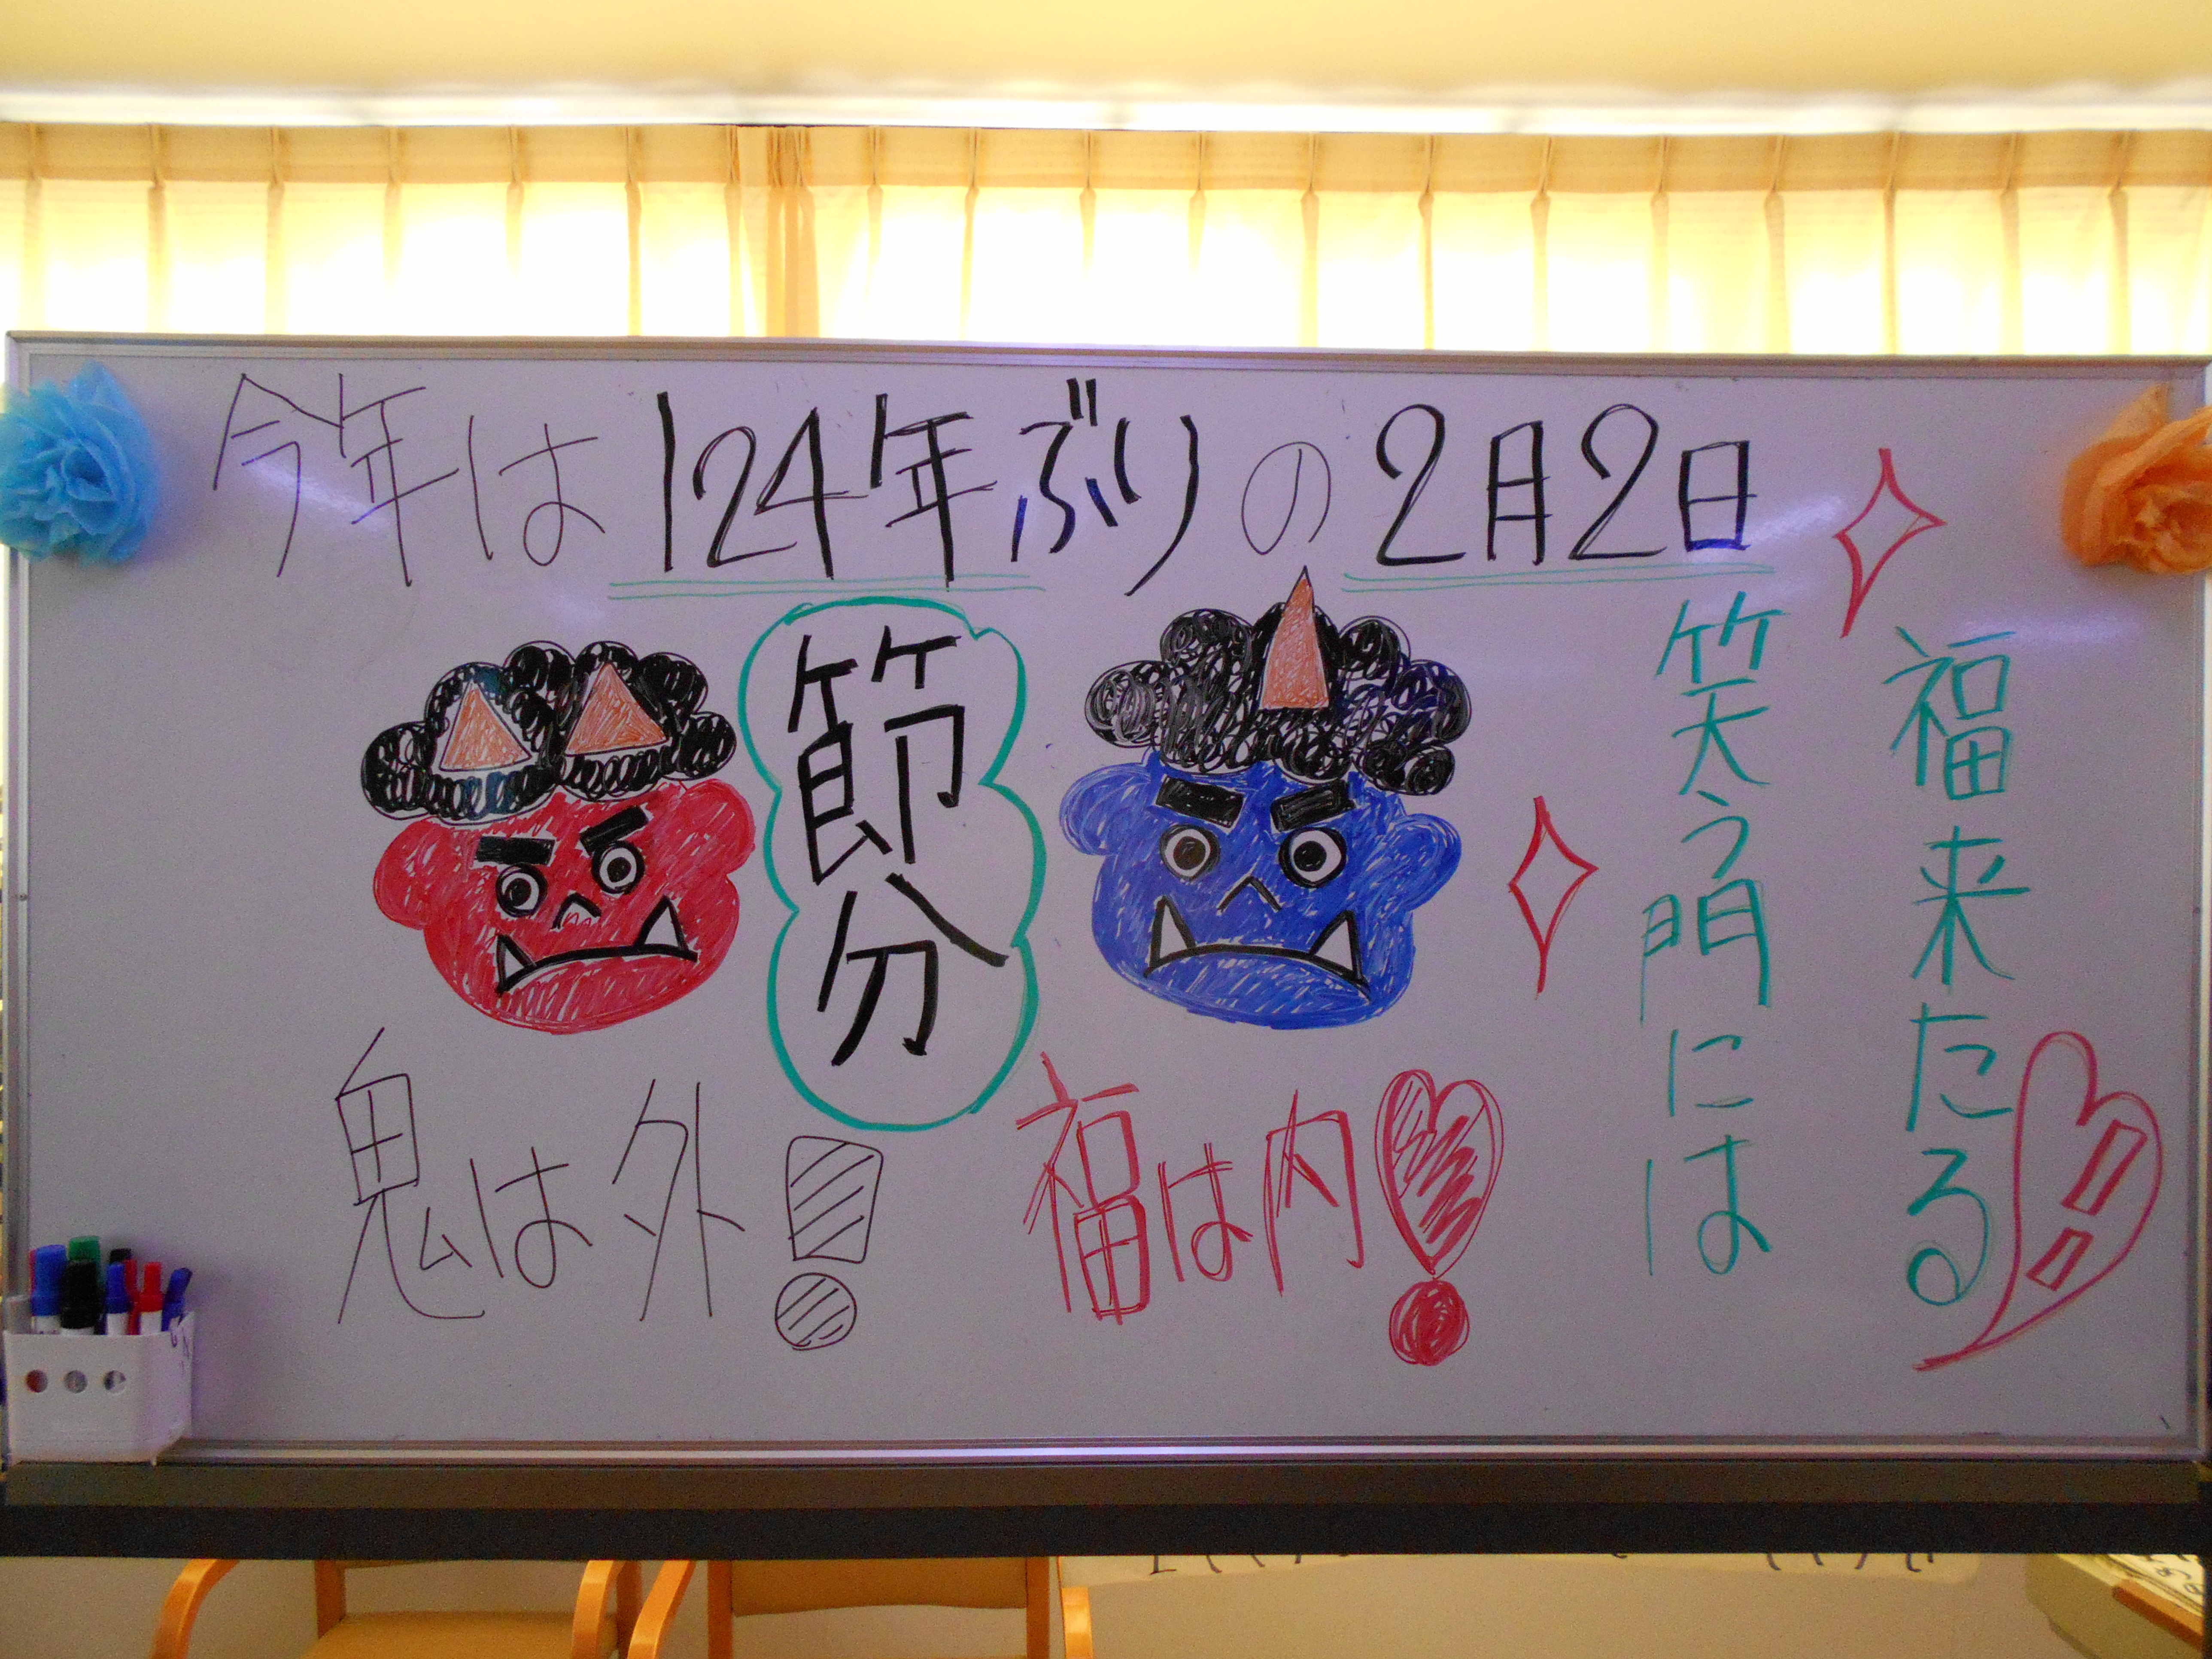 今年は124年ぶりの2月2日
節分
鬼は外!
福は内!
笑う門には
福来たる!!